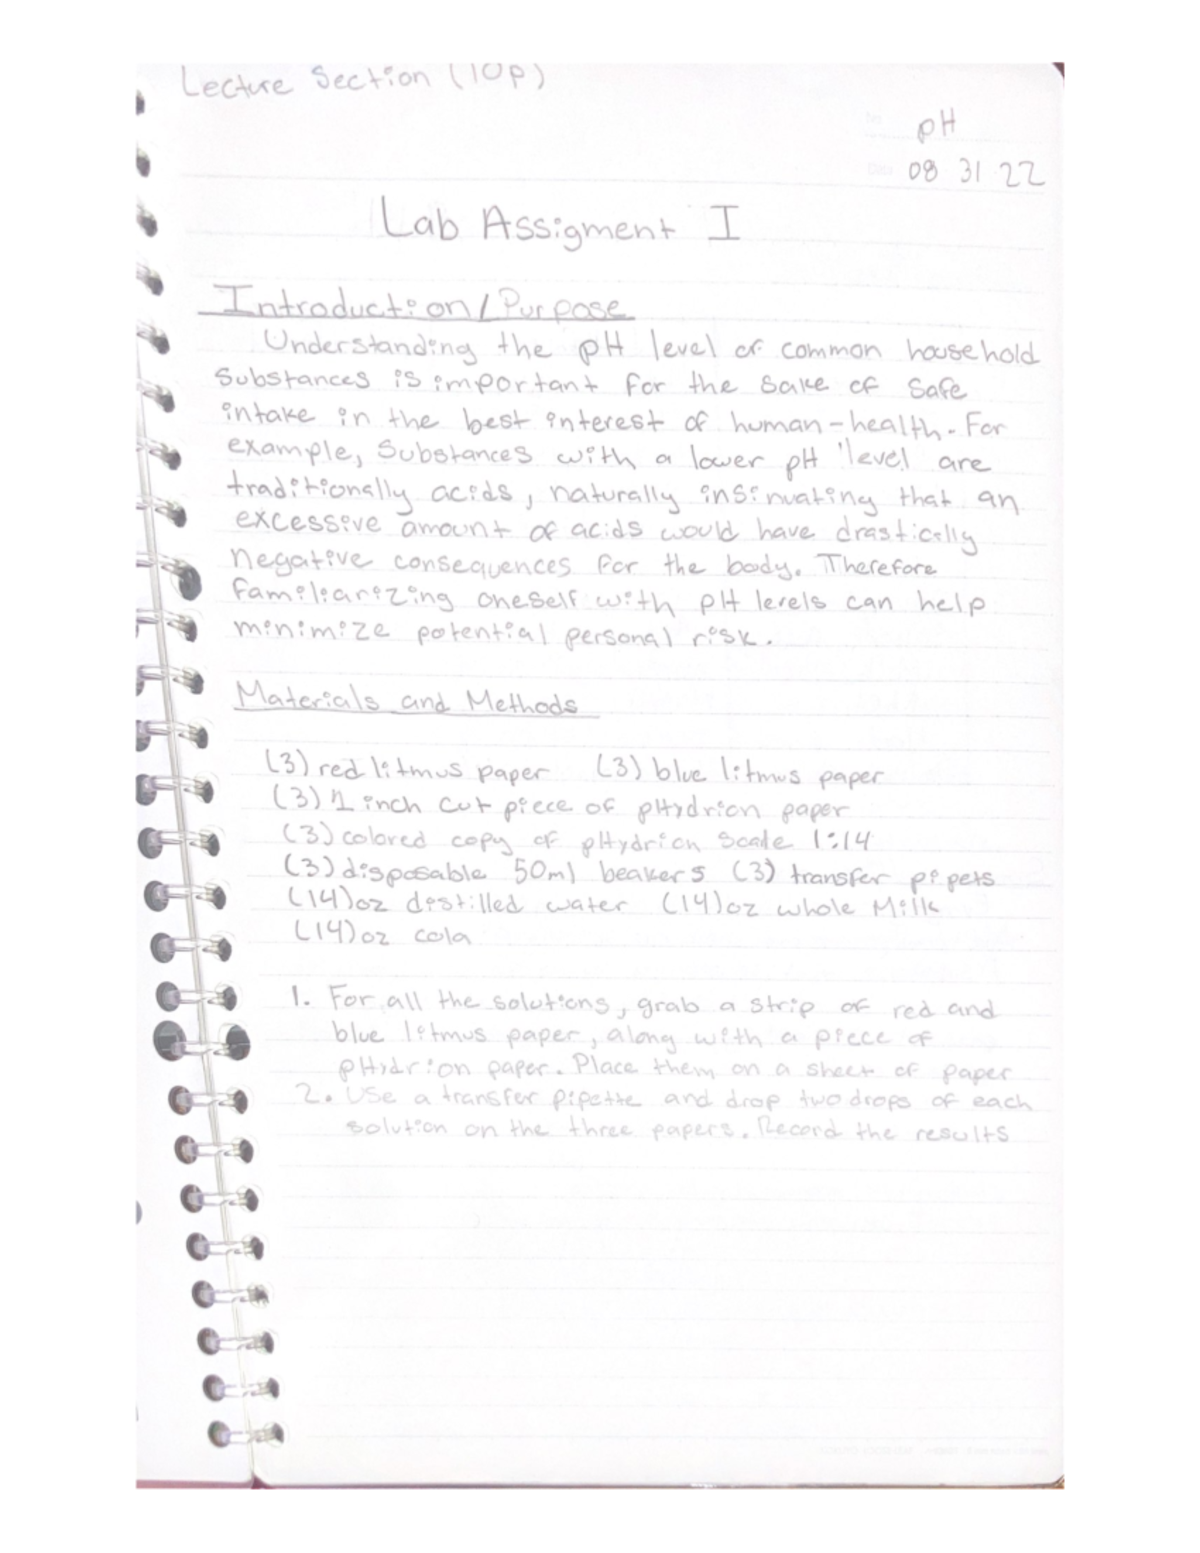 Lecture Section (10p)
pH
08 31 22
Lab Assigment I
Introduction/Purpose
Understanding the pH level of common household
substances is important for the sake of safe
intake in the best interest of human-health. For
example, Substances with a lower pH level are
traditionally acids, naturally insinuating that an
excessive amount of acids would have drastically
negative consequences for the body. Therefore
familiarizing oneself with pH levels can help
minimize potential personal risk.
Materials and Methods
(3) red litmus paper (3) blue litmus paper
(3) 1 inch cut piece of pHydrion paper
(3) colored copy of pHydrion Scale 1:14
(3) disposable 50ml beakers (3) transfer pipets
(14) oz distilled water (14) oz whole Milk
(14) oz cola
1. For all the solutions, grab a strip of red and
blue litmus paper, along with a piece of
pHydrion paper. Place them on a sheet of paper
2. Use a transfer pipette and drop two drops of each
solution on the three papers. Record the results